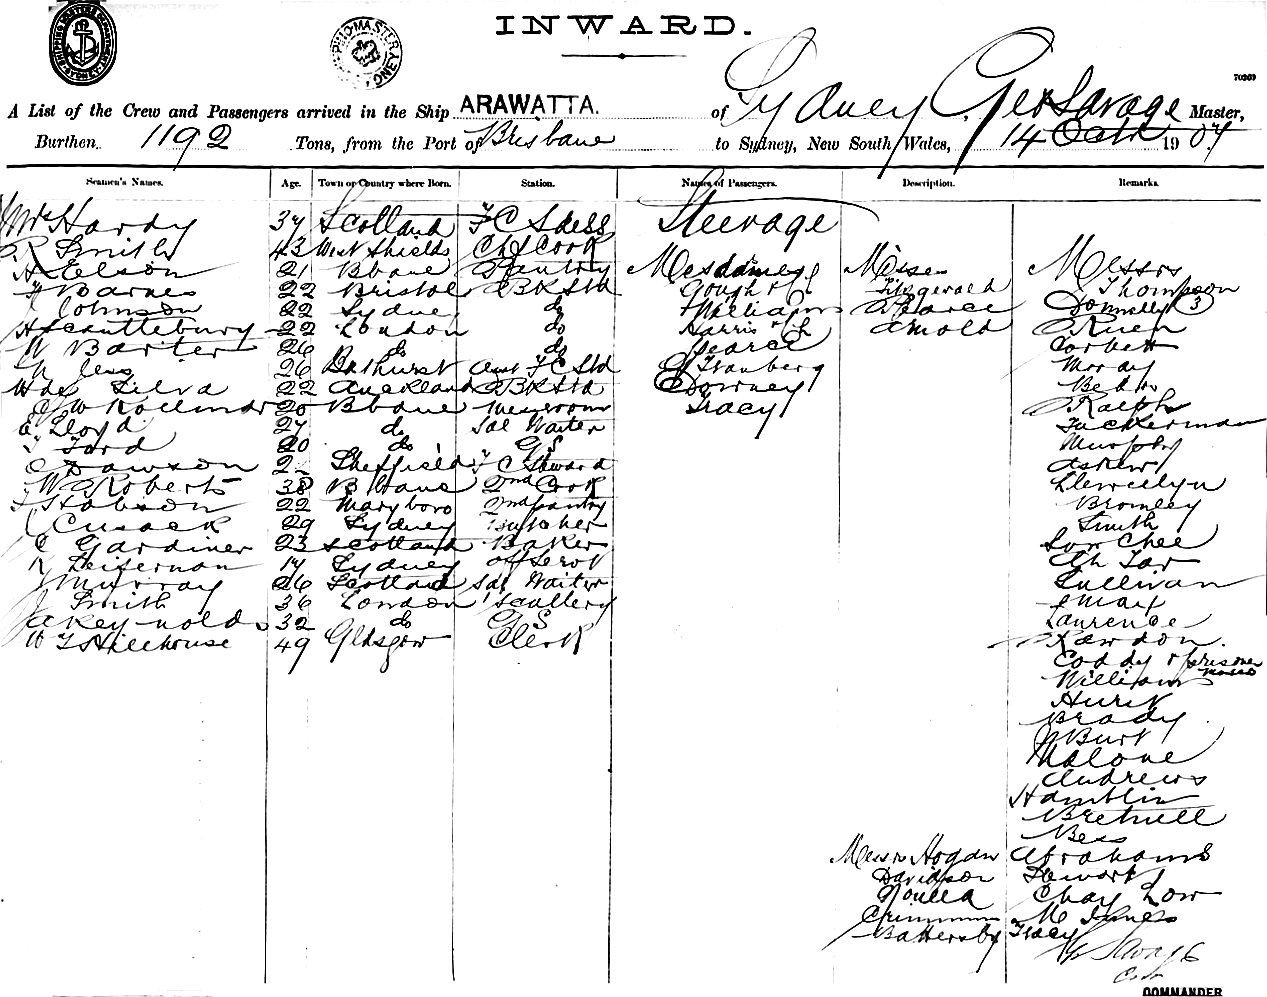 INWARD.
70369
A List of the Crew and Passengers arrived in the Ship ARAWATTA. of Sydney Geo Savage Master,
Burthen 1192 Tons, from the Port of Brisbane to Sydney, New South Wales, 14 Octr 1907
Seamen's Names. Age. Town or Country where Born. Station. Names of Passengers. Description. Remarks.
Mrs Hardy 37 Scotland F C Sdess Steerage
R Smith 43 West Shields Chf Cook
A Nelson 21 Bbane Pantry Mesdames Misses Messrs
F Barnes 22 Bristol BR Std Gough & Fitzgerald Thompson
Johnson 22 Sydney do Williams Pearce Donnelly (3)
H Scantlebury 22 London do Harris & Arnold
W Baxter 26 do do Pearce Corbett
26 Bathurst Asst F C Std Moody
W de Silva 22 Auckland BR Std Downey
W Kollmar 20 Bbane Messroom Tracy Ralph
E Lloyd 27 do Sal Waiter Tuckerman
Ford 20 do G S Murphy
C Dawson Sheffield F C Steward Askew
W Roberts 38 Bbane 2nd Cook Llewellyn
Hobson 22 Maryboro 2nd pantry Bromley
Cusack 29 Sydney Butcher Smith
C Gardiner 23 Scotland Baker Chee
K Heffernan 17 Sydney Ah
J Murray 26 Scotland Sal Waiter Sullivan
J Smith 36 London Scullery
32 do G S Laurence
W T Hillhouse 49 Glasgow Clerk Rawdon
Coddy & prisoner
Williams
Hurst
Brady
Burt
Malone
Andrews
Hamblin
Bretnell
Bess
Messrs Hogan Abrahams
Davidson Stewart
Chay Low
McInnes
Battersby Tracy
G Savage
COMMANDER